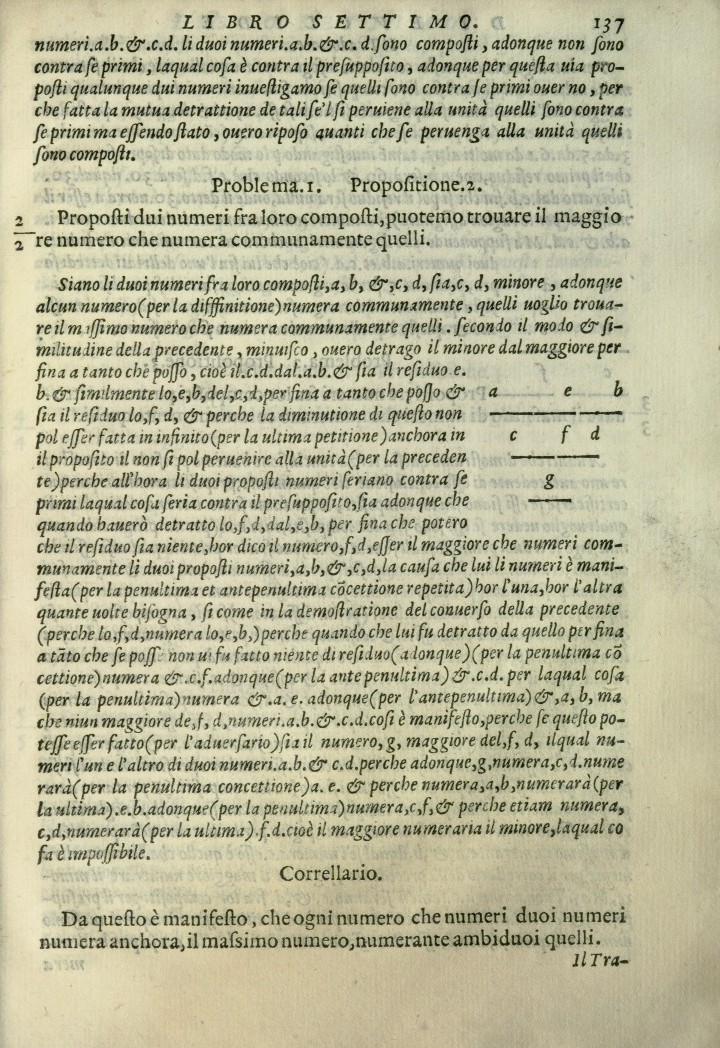 LIBRO SETTIMO. 137
numeri.a.b.&.c.d. li duoi numeri.a.b.&.c. d. ſono compoſti, adonque non ſono
contra ſe primi, laqual coſa è contra il preſuppoſito, adonque per queſta uia pro-
poſti qualunque dui numeri inueſtigamo ſe quelli ſono contra ſe primi ouer no, per
che fatta la mutua detrattione de tali ſe'l ſi peruiene alla unità quelli ſono contra
ſe primi ma eſſendo ſtato, ouero ripoſo auanti che ſe peruenga alla unità quelli
ſono compoſti.
Problema.1. Propoſitione.2.
2/2 Propoſti dui numeri fra loro compoſti, puotemo trouare il maggio
re numero che numera communamente quelli.
Siano li duoi numeri fra loro compoſti, a, b, &, c, d, ſia, c, d, minore, adonque
alcun numero (per la difffinitione) numera communamente, quelli uoglio troua-
re il maſſimo numero che numera communamente quelli. ſecondo il modo & ſi-
militudine della precedente, minuiſco, ouero detrago il minore dal maggiore per
fina a tanto che poſſo, cioè il.c.d.dal.a.b.& ſia il reſiduo e.
b.& ſimilmente lo, e, b, del, c, d, per fina a tanto che poſſo &
ſia il reſiduo lo, f, d, & perche la diminutione di queſto non
pol eſſer fatta in infinito (per la ultima petitione) anchora in
il propoſito il non ſi pol peruenire alla unità (per la preceden
te) perche all'hora li duoi propoſti numeri ſeriano contra ſe
primi laqual coſa ſeria contra il preſuppoſito, ſia adonque che
quando hauerò detratto lo, f, d, dal, e, b, per fina che potero
a e b
c f d
g
che il reſiduo ſia niente, hor dico il numero, f, d, eſſer il maggiore che numeri com-
munamente li duoi propoſti numeri, a, b, &, c, d, la cauſa che lui li numeri è mani-
feſta (per la penultima et antepenultima cõcettione repetita) hor l'una, hor l'altra
quante uolte biſogna, ſi come in la demoſtratione del conuerſo della precedente
(perche lo, f, d, numera lo, e, b,) perche quando che lui fu detratto da quello per fina
a tãto che ſe poſſe non ui fu fatto niente di reſiduo (adonque) (per la penultima cõ
cettione) numera &.c.f. adonque (per la ante penultima) &.c.d. per laqual coſa
(per la penultima) numera &.a. e. adonque (per l'antepenultima) &, a, b, ma
che niun maggiore de, f, d, numeri.a.b.&.c.d. coſi è manifeſto, perche ſe queſto po-
teſſe eſſer fatto (per l'aduerſario) ſia il numero, g, maggiore del, f, d, ilqual nu-
meri l'un e l'altro di duoi numeri.a.b.& c.d. perche adonque, g, numera, c, d. nume
rarà (per la penultima concettione) a. e. & perche numera, a, b, numerarà (per
la ultima).e.b. adonque (per la penultima) numera, c, f, & perche etiam numera,
c, d, numerarà (per la ultima).f.d. cioè il maggiore numeraria il minore, laqual co
ſa è impoſſibile.
Correllario.
Da queſto è manifeſto, che ogni numero che numeri duoi numeri
numera anchora, il maſsimo numero, numerante ambiduoi quelli.
Il Tra-